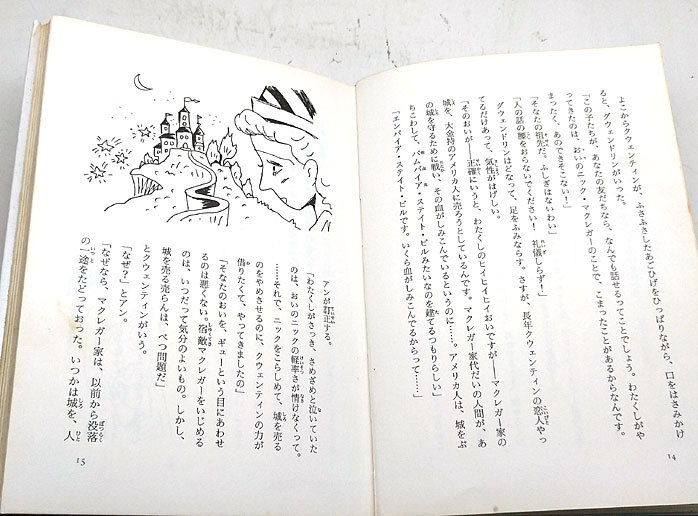 よこからクウェンティンが、ふさふさしたあごひげをひっぱりながら、口をはさみかけ
ると、グウェンドリンがいった。
「この子たちが、あなたの友だちなら、なんでも話せるってことでしょう。わたくしがや
ってきたのは、おいのニック・マクレガーのことで、こまったことがあるからなんです。
まったく、あのできそこない！」
「そなたの祖先だ。ふしぎはないわい」
「人の話の腰をおらないでください！　礼儀しらず！」
グウェンドリンはどなって、足をふみならす。さすが、長年クウェンティンの恋人やっ
てるだけあって、気性がはげしい。
「そのおいが――正確にいうと、わたくしのヒイヒイヒイおいですが――マクレガー家の
城を、大金持のアメリカ人に売ろうとしているんです。マクレガー家代だいの人間が、あ
の城を守るために戦い、その血がしみこんでいるというのに……。アメリカ人は、城をぶ
ちこわして、バムパイア・ステイト・ビルみたいなのを建てるつもりらしい」
「エンパイア・ステイト・ビルです。いくら血がしみこんでるからって……」
14
アンが訂正する。
「わたくしがさっき、さめざめと泣いていた
のは、おいのニックの軽率さが情けなくって。
……それで、ニックをこらしめて、城を売る
のをやめさせるのに、クウェンティンの力が
借りたくて、やってきましたの」
「そなたのおいを、ギューという目にあわせ
るのは悪くない。宿敵マクレガーをいじめる
のは、いつだって気分のよいもの。しかし、
城を売る売らんは、べつ問題だ」
とクウェンティンがいう。
「なぜ？」とアン。
「なぜなら、マクレガー家は、以前から没落
の一途をたどっておった。いつかは城を、人
15